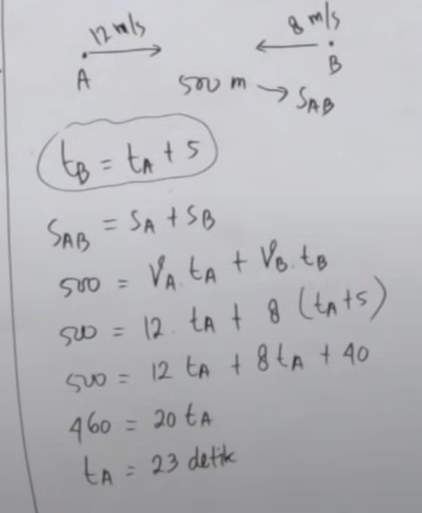 12 m/s
8 m/s
A
B
500 m → S_AB
t_B = t_A + 5
S_AB = S_A + S_B
500 = V_A. t_A + V_B. t_B
500 = 12. t_A + 8 (t_A+5)
500 = 12 t_A + 8 t_A + 40
460 = 20 t_A
t_A = 23 detik